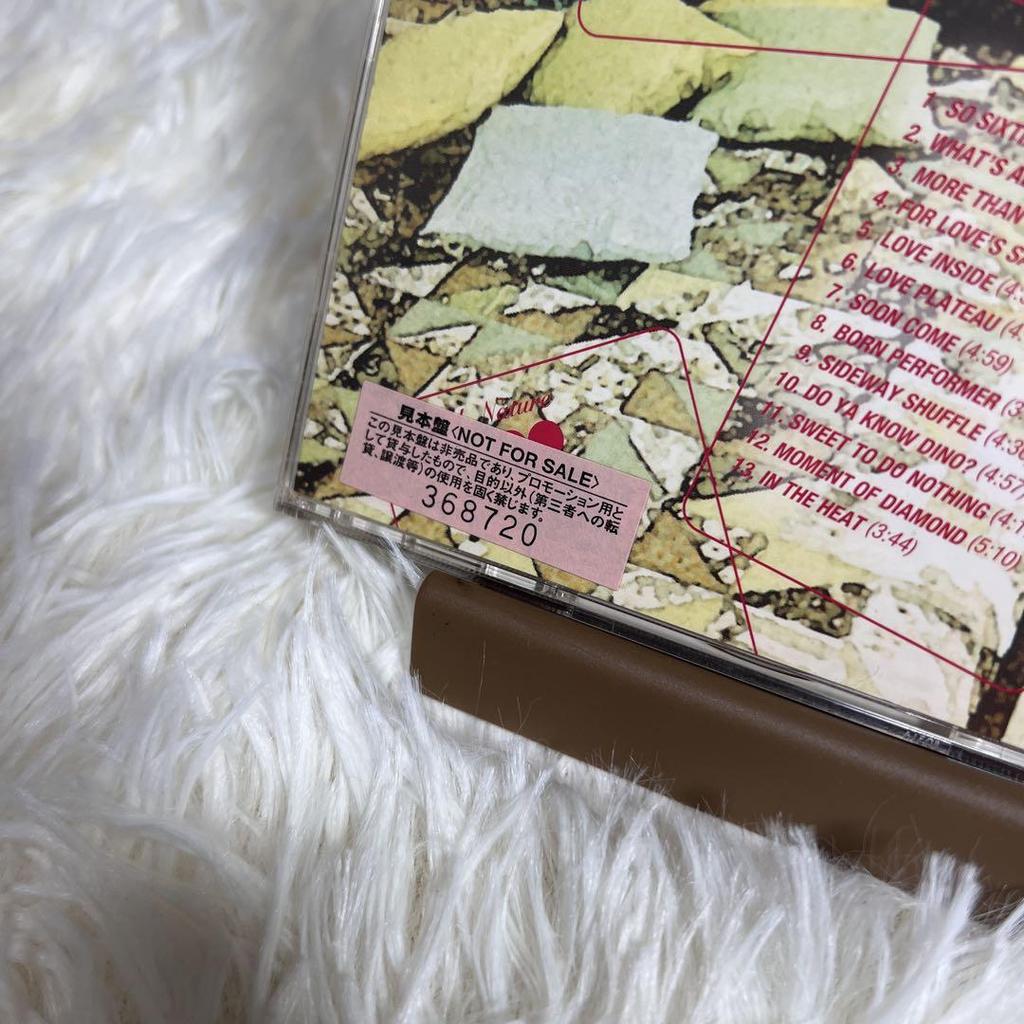 1. SO SIXT
2. WHAT'S A
3. MORE THAN
4. FOR LOVE'S S
5. LOVE INSIDE (4:
6. LOVE PLATEAU (4:
7. SOON COME (4:59)
8. BORN PERFORMER (3:
9. SIDEWAY SHUFFLE (4:38
10. DO YA KNOW DINO? (4:57)
11. SWEET TO DO NOTHING (4:1
12. MOMENT OF DIAMOND (5:10)
13. IN THE HEAT (3:44)
Nature
見本盤〈NOT FOR SALE〉
この見本盤は非売品であり、プロモーション用と
して貸与したもので、目的以外(第三者への転
貸、譲渡等)の使用を固く禁じます。
368720